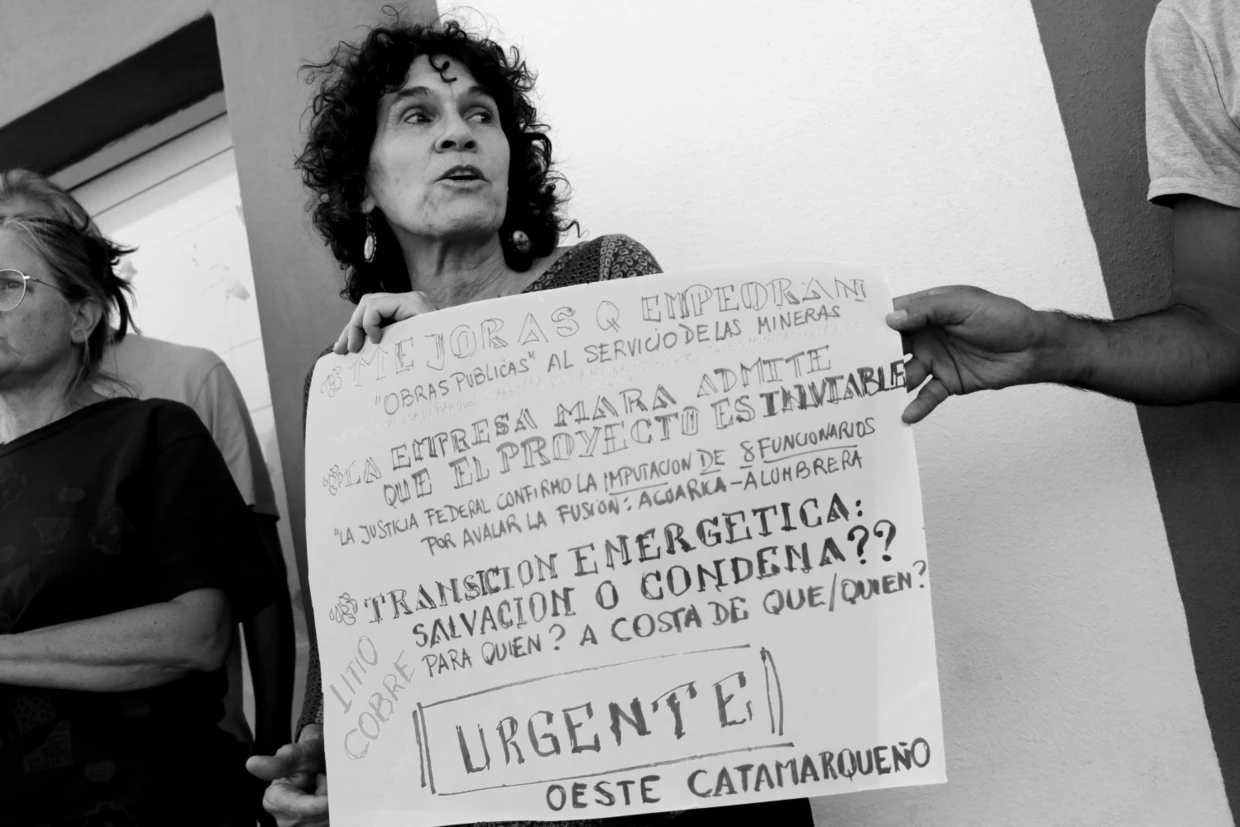 MEJORAS Q EMPEORAN
"OBRAS PUBLICAS" AL SERVICIO DE LAS MINERAS
LA EMPRESA MARA ADMITE
QUE EL PROYECTO ES INVIABLE
"LA JUSTICIA FEDERAL CONFIRMO LA IMPUTACION DE 8 FUNCIONARIOS
POR AVALAR LA FUSIÓN: AGUARICA-ALUMBRERA
TRANSICION ENERGETICA:
SALVACION O CONDENA??
PARA QUIEN? A COSTA DE QUE/QUIEN?
LITIO
COBRE
URGENTE
OESTE CATAMARQUEÑO